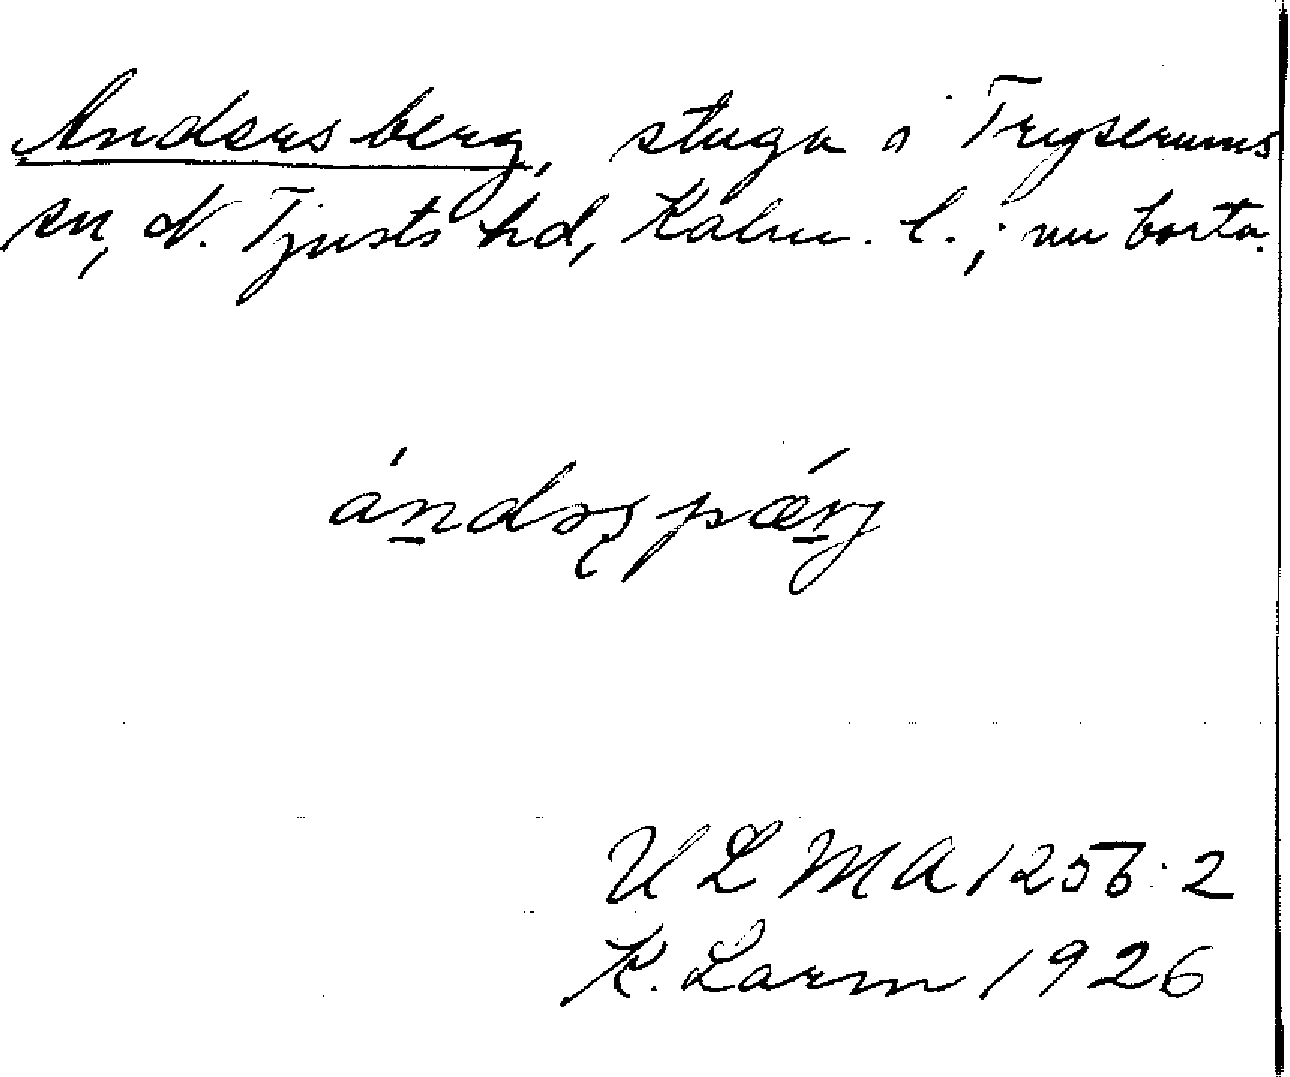 Andersberg, stuga i Tryserums
sn, N. Tjusts hd, Kalm. l.; nu borta.
ándrspærj
ULMA 1255:2
K. Larm 1926